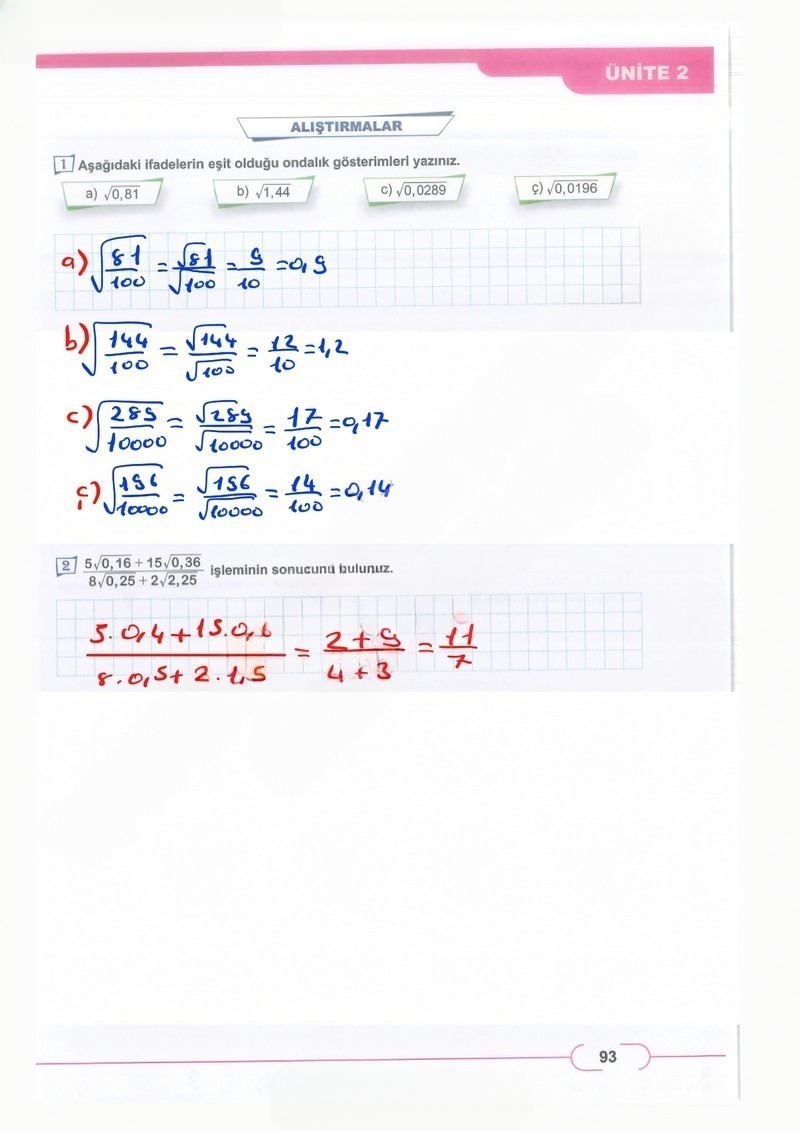 ÜNİTE 2
ALIŞTIRMALAR
1 Aşağıdaki ifadelerin eşit olduğu ondalık gösterimleri yazınız.
a) √0,81 b) √1,44 c) √0,0289 ç) √0,0196
a) √(81/100) = √81/√100 = 9/10 = 0,9
b) √(144/100) = √144/√100 = 12/10 = 1,2
c) √(289/10000) = √289/√10000 = 17/100 = 0,17
ç) √(196/10000) = √196/√10000 = 14/100 = 0,14
2 (5√0,16 + 15√0,36)/(8√0,25 + 2√2,25) işleminin sonucunu bulunuz.
(5.0,4+15.0,6)/(8.0,5+2.1,5) = (2+9)/(4+3) = 11/7
93